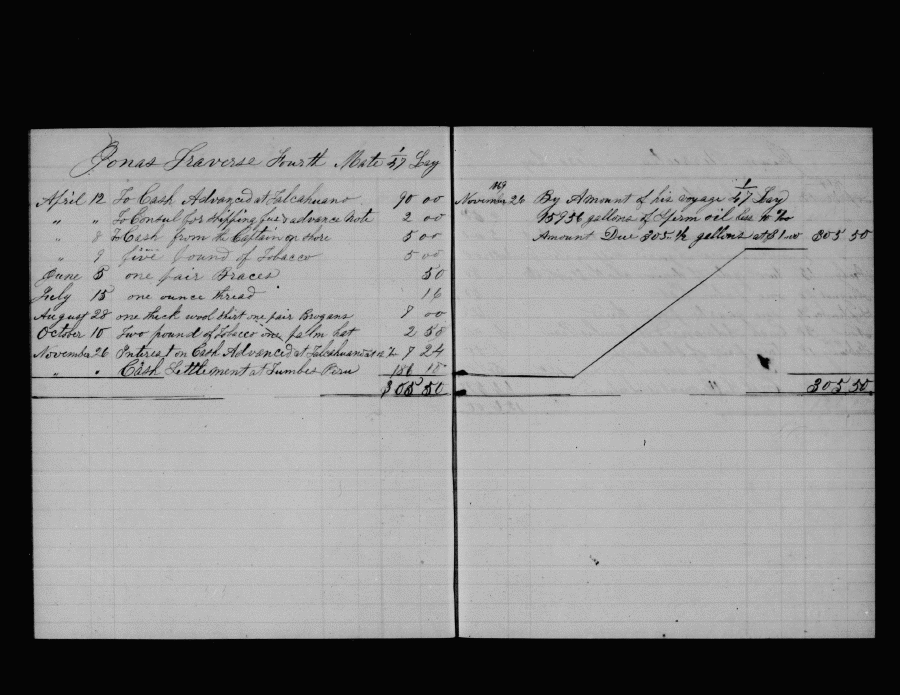 Jonas Traverse Fourth Mate 1/47 Lay
April 12 To Cash Advanced at Talcahuano 90 00
" " To Consul for shipping fees & advance Note 2 00
" 8 To Cash from the Captain on shore 5 00
" 9 five pound of Tobacco 5 00
June 5 one pair Braces 50
July 15 one ounce thread 16
August 28 one thick wool shirt one pair Brogans 7 00
October 10 Two pound of Tobacco one palm hat 2 58
November 26 Interest on Cash Advanced at Talcahuano at 12 % 7 24
" " Cash Settlement at Tumbes Peru 186 18
$ 305 50
1869
November 26 By Amount of his voyage 1/47 Lay
gallons of Sperm oil less 10 %
Amount Due 305 1/2 gallons at $1 00 305 50
305 50